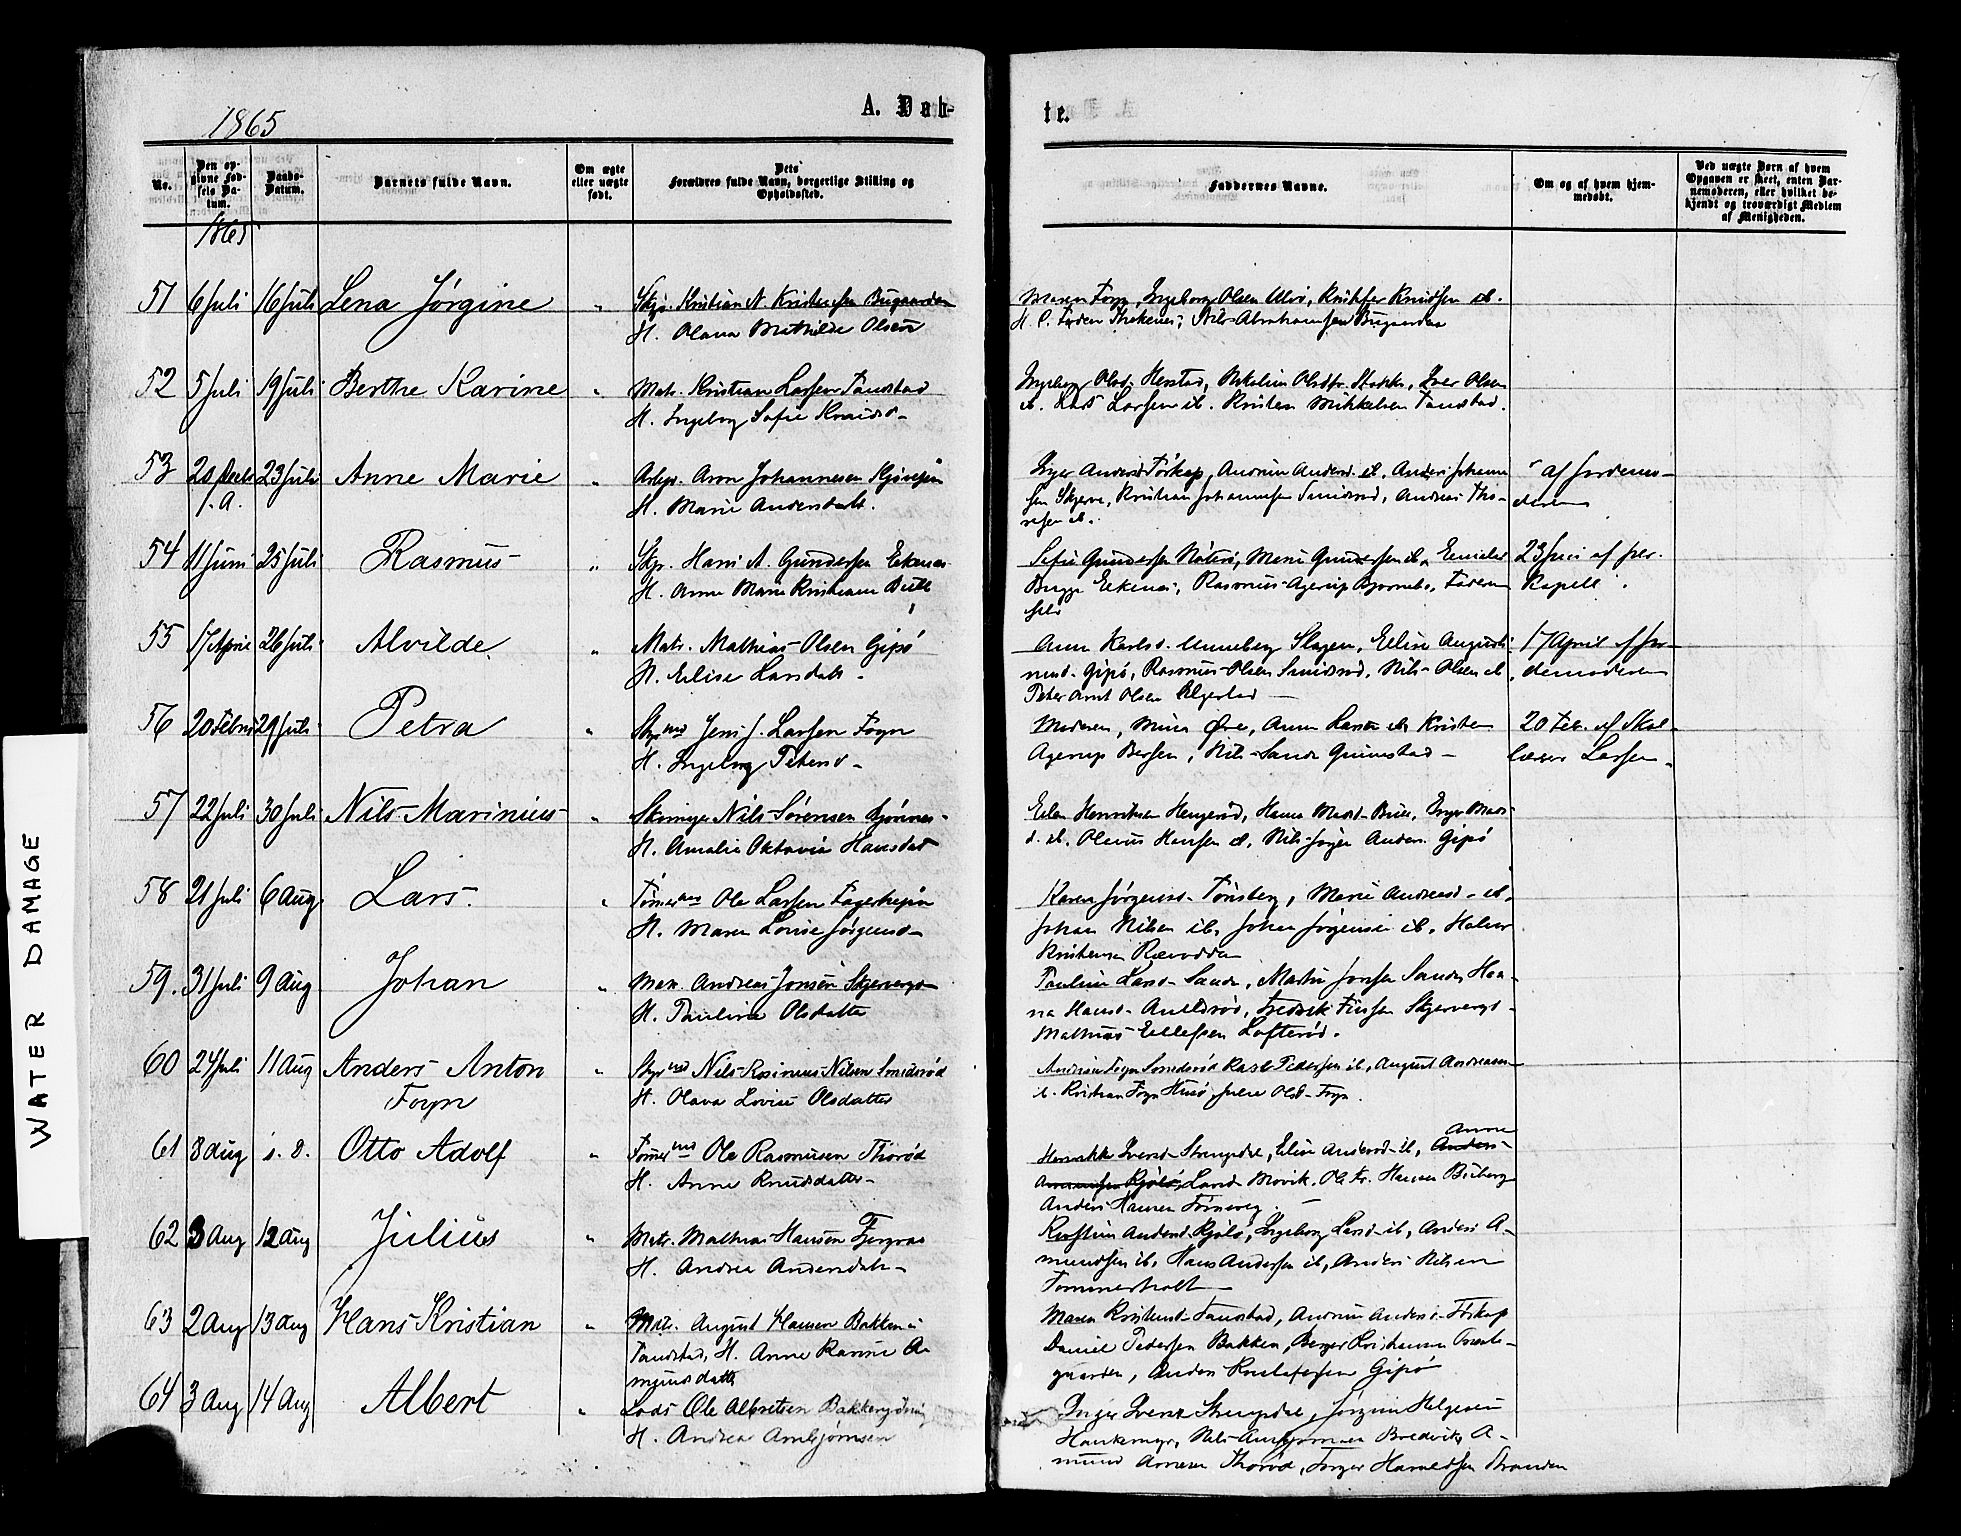 1865
A. Dab-
te.
No.
Den op-
givne Fød-
sels Da-
tum.
Daabs-
Datum.
Barnets fulde Navn.
Om ægte
eller uægte
født.
Dets
Forældres fulde Navn, borgerlige Stilling og
Opholdssted.
Faddernes Navne.
Om og af hvem hjem-
medøbt.
Ved uægte Barn af hvem
Opgaven er skeet, enten Bar-
nemoderen, eller hvilket be-
kjendt og troværdigt Medlem
af Menigheden.
1865
51 6 Juli 16 Juli Lena Jørgine " Kristian N. Kristensen Bugaarden
H. Olava Mathilde Olsen
Maren Foyn, Ingeborg Olsen Kristofer Knudsen ib.
H. C. Nils Abrahamsen Bugaarden
52 5 Juli 19 Juli Berthe Karine " Matr. Kristian Larsen Tandstad
H. Ingeborg Sofie Knudsd-
Ingeborg Olsd. Herstad, Olsdtr. Stokke, Iver Olsen
ib. Lars Larsen ib. Kristen Mikkelsen Tandstad.
53 20 Decbr f. A. 23 Juli Anne Marie " Arbr. Aron Johannesen
H. Marie Andersdatt.
Inger Andersd. Torkop, Andrine Andersd. ib. Anders Johanne
sen Skjerve, Kristian Johannesen Smidsrød, Andreas Tho-
resen ib.
" af Jordemo-
deren
54 11 Juni 25 Juli Rasmus " Skpr. Hans A. Gundersen Ekenes
H. Anne Marie Kristiane Bull
Sofie Gundersen Nøterø, Marie Gundersen ib.
Bugge Ekenes, Rasmus Agerup Bjørnebo, Faderen
selv
23 Juni af per.
Kapell.
55 17 April 26 Juli Alvilde " Matr. Mathias Olsen Gipø
H. Elise Larsdatt.
Anne Karlsd. Unneberg Slagen, Eline August
Gipø, Rasmus Olsen Smidsrød, Nils Olsen ib
Peter Arnt Olsen Elgestad
17 April af Jor-
demoderen
56 20 Februar 29 Juli Petra " Styrmd Jens J. Larsen Foyn
H. Ingeborg Petersd-
Moderen, Mina Øre, Anne Larsen ib Kristen
Agerup Bersen, Nils Sande Grimestad
20 Feb. af Skol-
lærer Larsen
57 22 Juli 30 Juli Nils Marinius " Nils Sørensen
H. Amalie Oktavia Hansdat
Henriksen Hengerød, Hanne Inger
d. ib. Olavus Hansen ib, Nils Jørgen Anders. Gipø
58 21 Juli 6 Aug Lars. " Tømermd Ole Larsen Fagertun
H. Maren Lovise Jørgensd-
Karen Jørgensd. Tønsberg, Marie Andreasd. ib.
Johan Nilsen ib, Johan Jørgensen ib. Halvor
Kristensen Ravodden
59. 31 Juli 9 Aug Johan " Matr. Andreas Jonsen Skjerverød
H. Pauline Olsdatter
Pauline Larsd. Sande, Martin Jonsen Sande, Han-
na Hansd. Fredrik Finsen Skjerverød
Mathias Ellefsen Lofterød.
60 24 Juli 11 Aug Anders Anton
Foyn
" Styrmd Nils Rosinius Nilsen Smidsrød
H. Olava Lovise Olsdatter
Andrea Foyn Smidsrød Karl Pedersen ib, August Andreasen
ib. Kristian Foyn Husø, Julie Olsd. Foyn.
61 8 Aug s. d. Otto Adolf " Tømermd Ole Rasmusen Thorød
H. Anne Knudsdatter
Anne
Henrikke Iversd. Strengsdal, Eline Andersd. ib, Anders
Amundsen Kjøle, Larsd. Movik, Ole Kr. Hansen Buberg
Anders Hansen
62 3 Aug 12 Aug Julius " Matr. Mathias Hansen
H. Andrea Andersdatt.
Andersd. Kjøle, Ingeborg Larsd. ib, Anders A-
mundsen ib, Hans Andersen ib, Anders Nilsen
Tommerholt
63 2 Aug 13 Aug Hans Kristian " Matr. August Hansen Bakken i
Tandstad, H. Anne Karine A-
mundsdatter
Maren Kristensd. Tandstad, Andrine Andersd. Torkop
Daniel Pedersen Bakken, Berger Kristensen
gaarden, Anders Kristofersen Gipø
64 3 Aug 14 Aug Albert " Lods Ole Albretsen Bakken
H. Andrea Arnbjørnsen
Inger Iversd. Strengsdal, Jørgine Helgesen
Haukemyr, Nils Arnbjørnsen Bredvik, A-
mund Arnesen Thorød, Torger Haraldsen Stranden
WATER DAMAGE